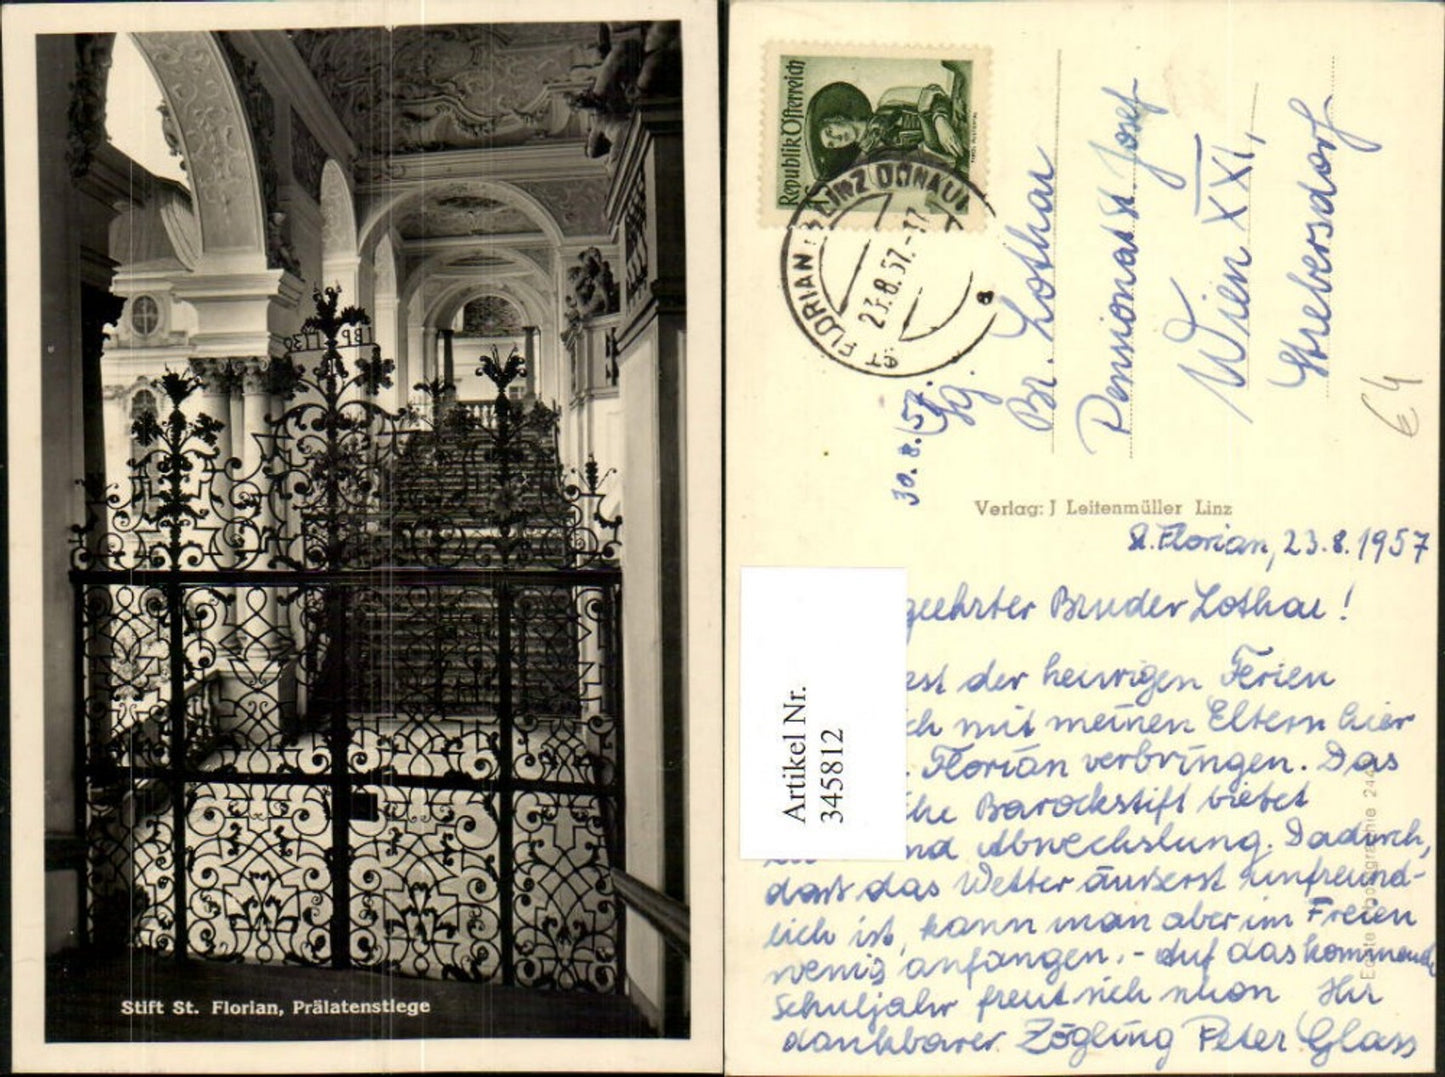 JBP 1730
Stift St. Florian, Prälatenstiege
Republik Österreich
ST FLORIAN B LINZ DONAU
23.8.57.-17
a
30.8.57.
Sg.
Br. Lothar
Pensionat St Josef
Wien XXI,
Strebersdorf
€4
Verlag: J Leitenmüller Linz
St. Florian, 23.8.1957
geehrter Bruder Lothar!
der heurigen Ferien
ich mit meinen Eltern hier
Florian verbringen. Das
che Barockstift bietet
Abwechslung. Dadurch,
daß das Wetter äußerst unfreund-
lich ist, kann man aber im Freien
wenig anfangen. - Auf das kommende
Schuljahr freut sich schon Ihr
dankbarer Zögling Peter Glass
Artikel Nr.
345812